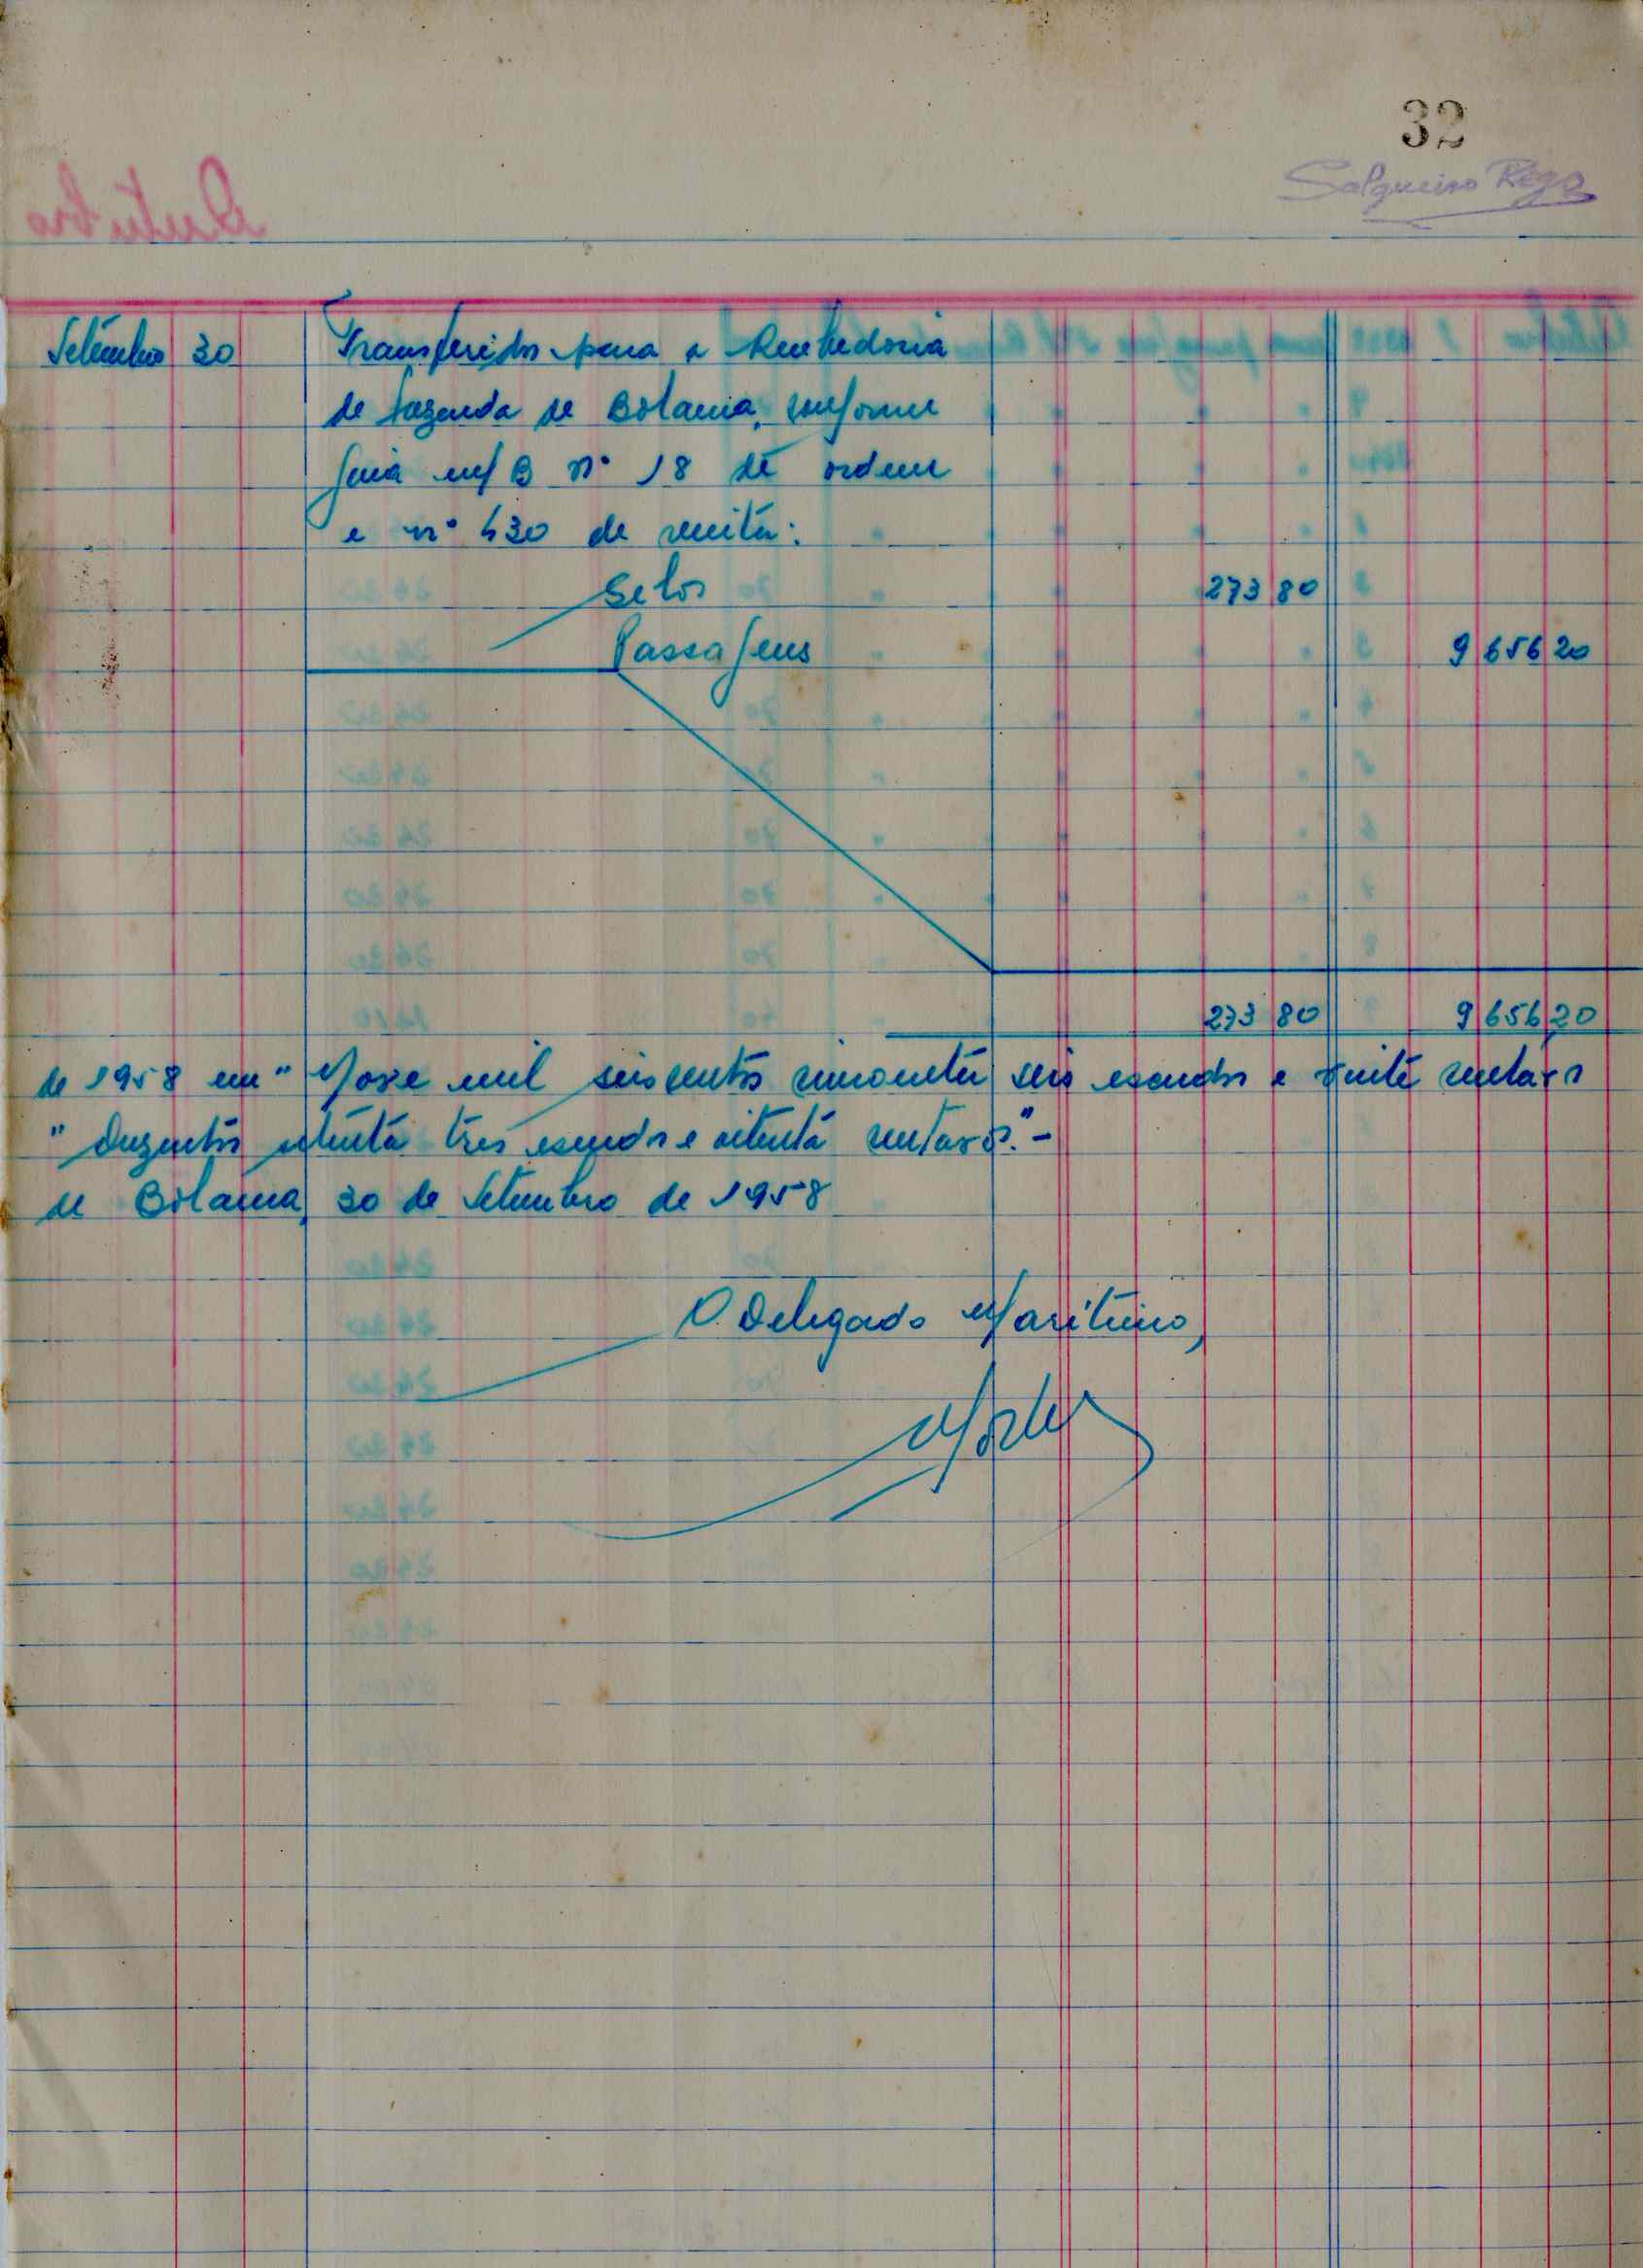 32
Salgueiro Rego
Setembro 30 Transferidos para a Recebedoria
de fazenda de Bolama, conforme
guia m/ B nº 18 de ordem
e nº 430 de receita:
Selos 273 80
Passagens 9 656 20
273 80 9 656,20
de 1958 em " Nove mil seiscentos cincoenta seis escudos e vinte centavos
" Duzentos setenta três escudos e oitenta centavos." -
de Bolama, 30 de Setembro de 1958
O Delegado Marítimo,